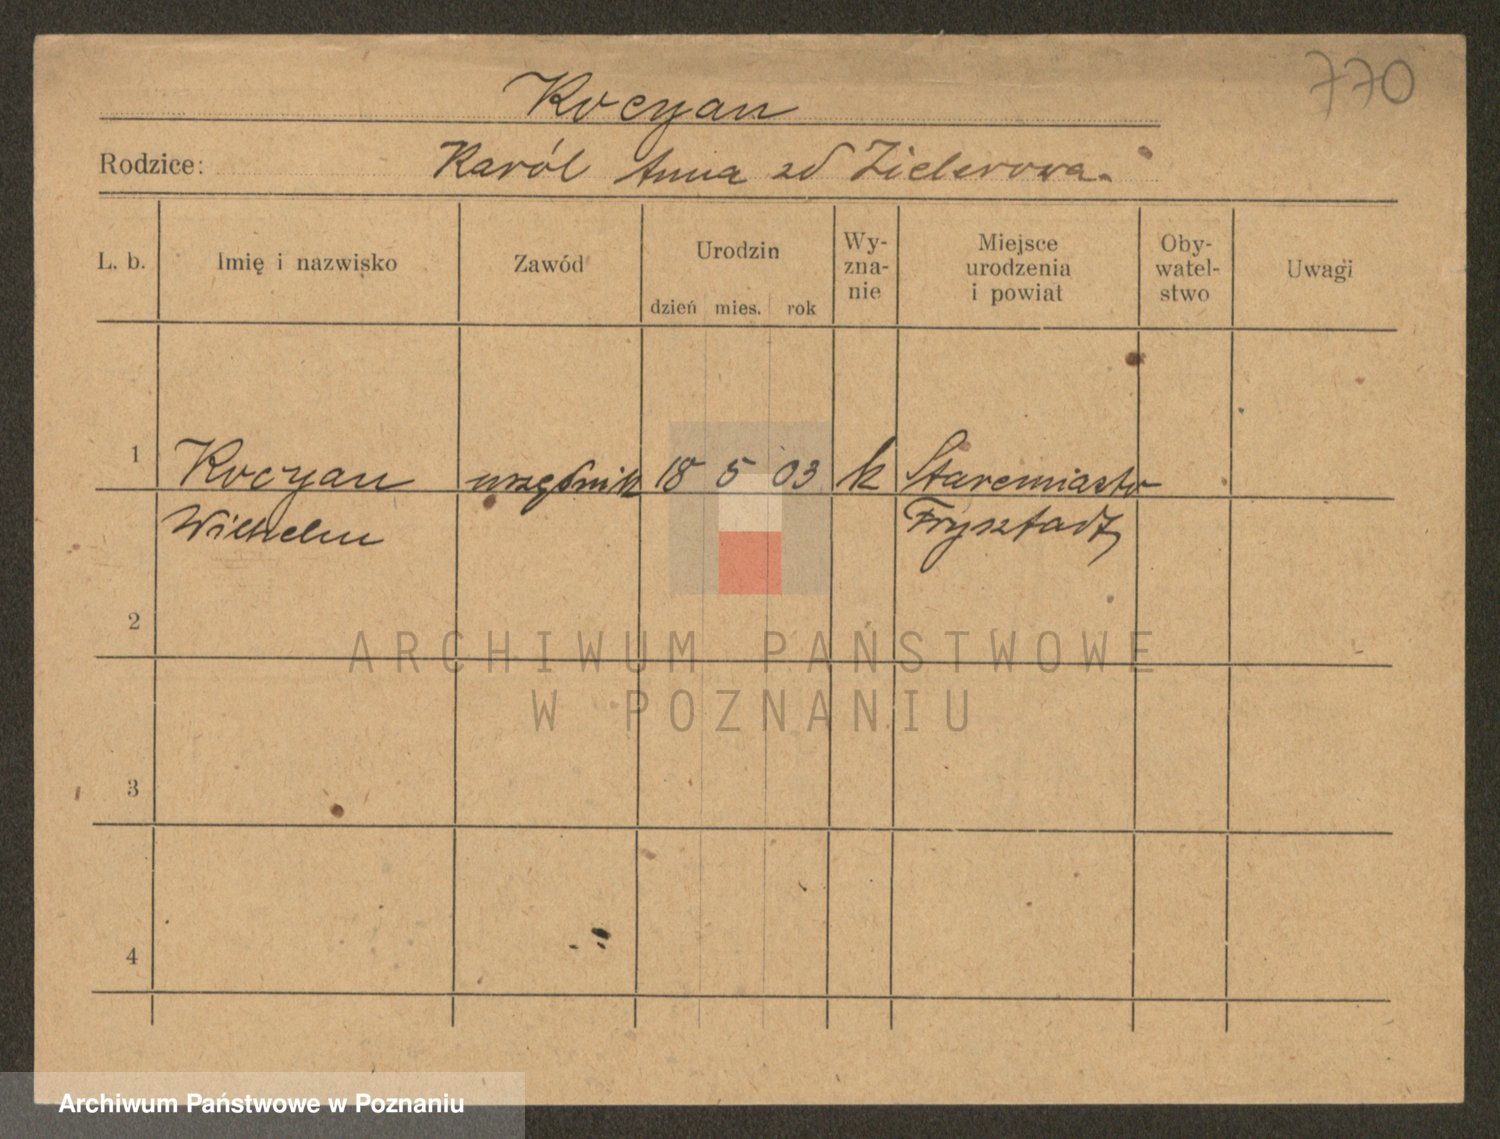 770
Kocyan
Rodzice: Karól Anna zd Zielerowa.
L. b. Imię i nazwisko Zawód Urodzin dzień mies. rok Wy-zna-nie Miejsce urodzenia i powiat Oby-watel-stwo Uwagi
1 Kocyan urzędnik 18 5 03 k Staremiasto
Wilhelm Frysztadt
2
ARCHIWUM PAŃSTWOWE
W POZNANIU
3
4
Archiwum Państwowe w Poznaniu